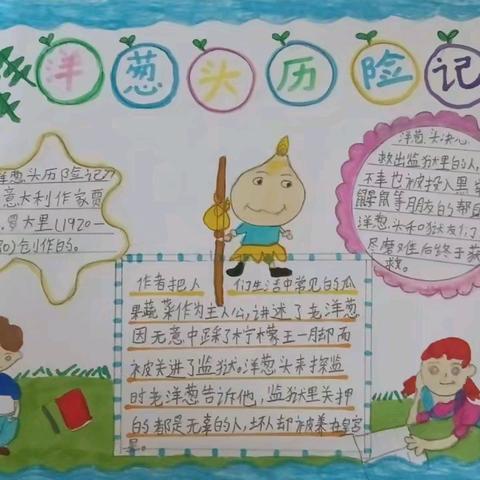 洋葱头历险记
洋葱头历险记》
意大利作家贾
罗大里(1920—
80)创作的。
洋葱头决心
救出监狱里的人,
不幸也被投入黑
鼹鼠等朋友的帮
洋葱头和狱友们
尽磨难后终于获
救。
作者把人们生活中常见的瓜
果蔬菜作为主人公,讲述了老洋葱
因无意中踩了柠檬王一脚而
被关进了监狱。洋葱头来探监
时老洋葱告诉他,监狱里关押
的都是无辜的人,坏人却被养在皇宫
里。